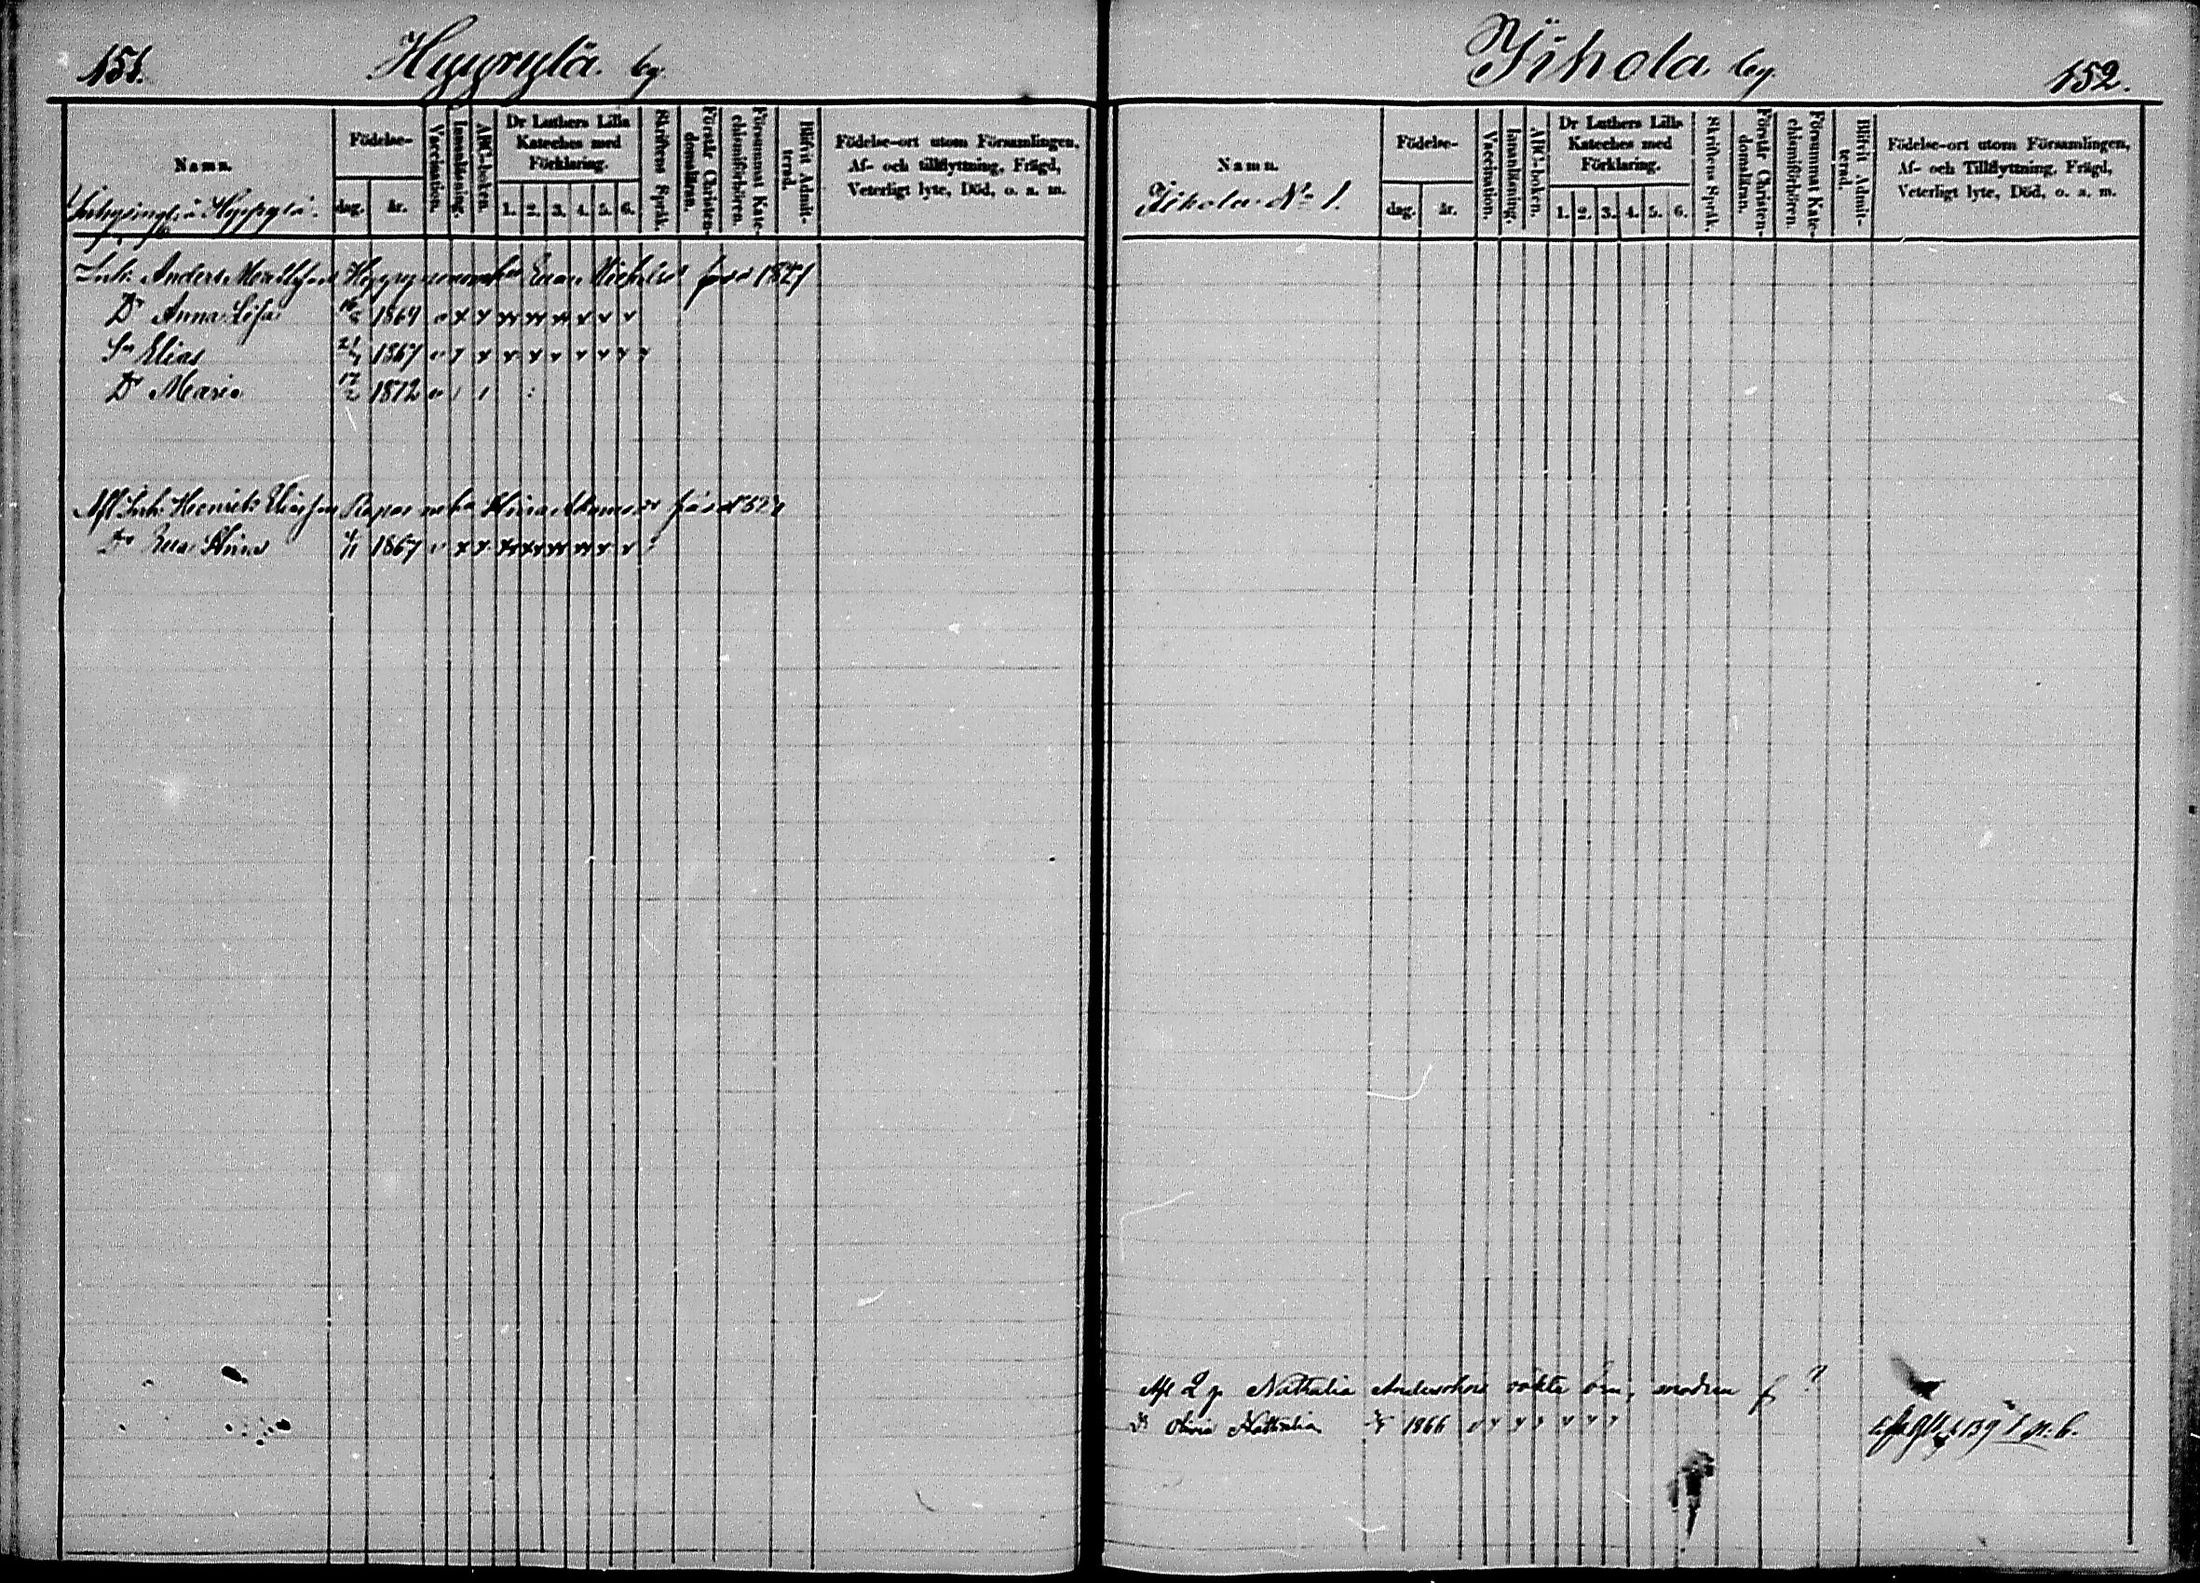 151.
Hyyrylä by
Namn.
Födelse-
dag.
år.
Vaccination.
Innanläsning.
ABC-boken.
Dr Luthers Lilla
Kateches med
Förklaring.
1. 2. 3. 4. 5. 6.
Skriftens Språk.
Förstår Christen-
domsläran.
Försummat Kate-
chismiförhören.
Blifvit Admit-
terad.
Födelse-ort utom Församlingen,
Af- och tillflyttning, Frägd,
Veterligt lyte, Död, o. a. m.
Inhysingar å Hyyrylä.
Inh. Anders Hyyry Michelsd född 1821
Dr Anna Lisa 1864
Sn Elias 21 1867
Dr Maria 17/2 1872
Afl Inh. Henrik Stina född
Dr Eva Stina 1867
Jihola by
152.
Namn.
Födelse-
dag.
år.
Vaccination.
Innanläsning.
ABC-boken.
Dr Luthers Lilla
Kateches med
Förklaring.
1. 2. 3. 4. 5. 6.
Skriftens Språk.
Förstår Christen-
domsläran.
Försummat Kate-
chismiförhören.
Blifvit Admit-
terad.
Födelse-ort utom Församlingen,
Af- och Tillflyttning, Frägd,
Veterligt lyte, Död, o. a. m.
Jihola No 1.
Afl Nathalia modren f ?
Dr Olivia Nathalia 1866